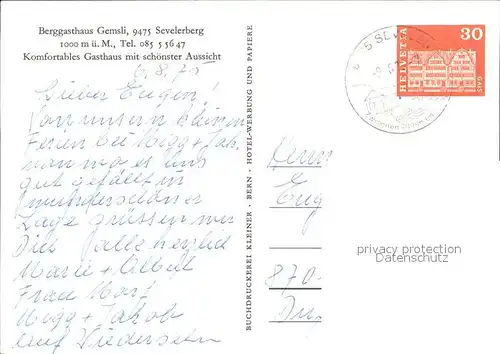 Berggasthaus Gemsli, 9475 Sevelerberg
1000 m ü. M., Tel. 085 5 56 47
Komfortables Gasthaus mit schönster Aussicht
6. 8. 75
Lieber Eugen!
Von unsern kleinen
Ferien bei Migg + Jak.
wo es uns
gut gefällt in
wunderschöner
Lage grüssen wir
Dich alle herzlich
Marie + Albert
Frau Morf
Migg + Jakob
auf Wiedersehn
BUCHDRUCKEREI KLEINER · BERN · HOTEL-WERBUNG UND PAPIERE
HELVETIA
30
GAIS
Herrn
Eug
870
privacy protection
Datenschutz